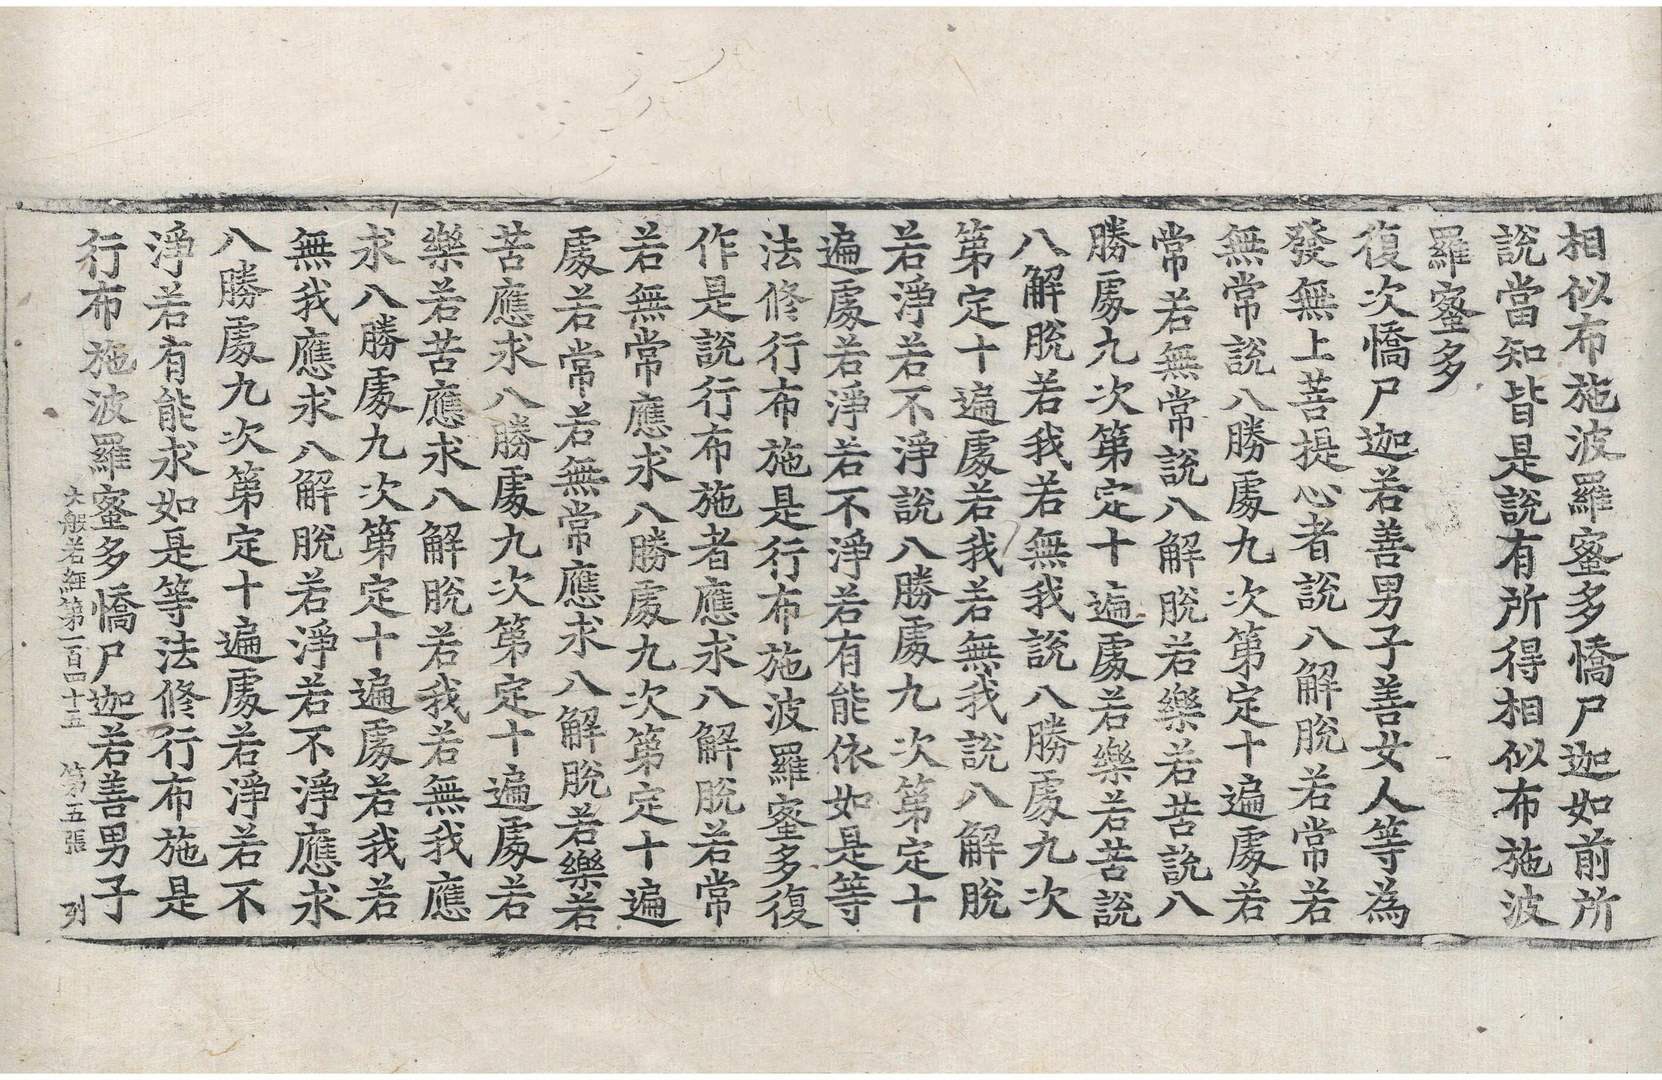 相似布施波羅蜜多憍尸迦如前所
說當知皆是說有所得相似布施波
羅蜜多
復次憍尸迦若善男子善女人等為
發無上菩提心者說八解脫若常若
無常說八勝處九次第定十遍處若
常若無常說八解脫若樂若苦說八
勝處九次第定十遍處若樂若苦說
八解脫若我若無我說八勝處九次
第定十遍處若我若無我說八解脫
若淨若不淨說八勝處九次第定十
遍處若淨若不淨若有能依如是等
法修行布施是行布施波羅蜜多復
作是說行布施者應求八解脫若常
若無常應求八勝處九次第定十遍
處若常若無常應求八解脫若樂若
苦應求八勝處九次第定十遍處若
樂若苦應求八解脫若我若無我應
求八勝處九次第定十遍處若我若
無我應求八解脫若淨若不淨應求
八勝處九次第定十遍處若淨若不
淨若有能求如是等法修行布施是
行布施波羅蜜多憍尸迦若善男子
大般若經第一百四十五 第五張 列